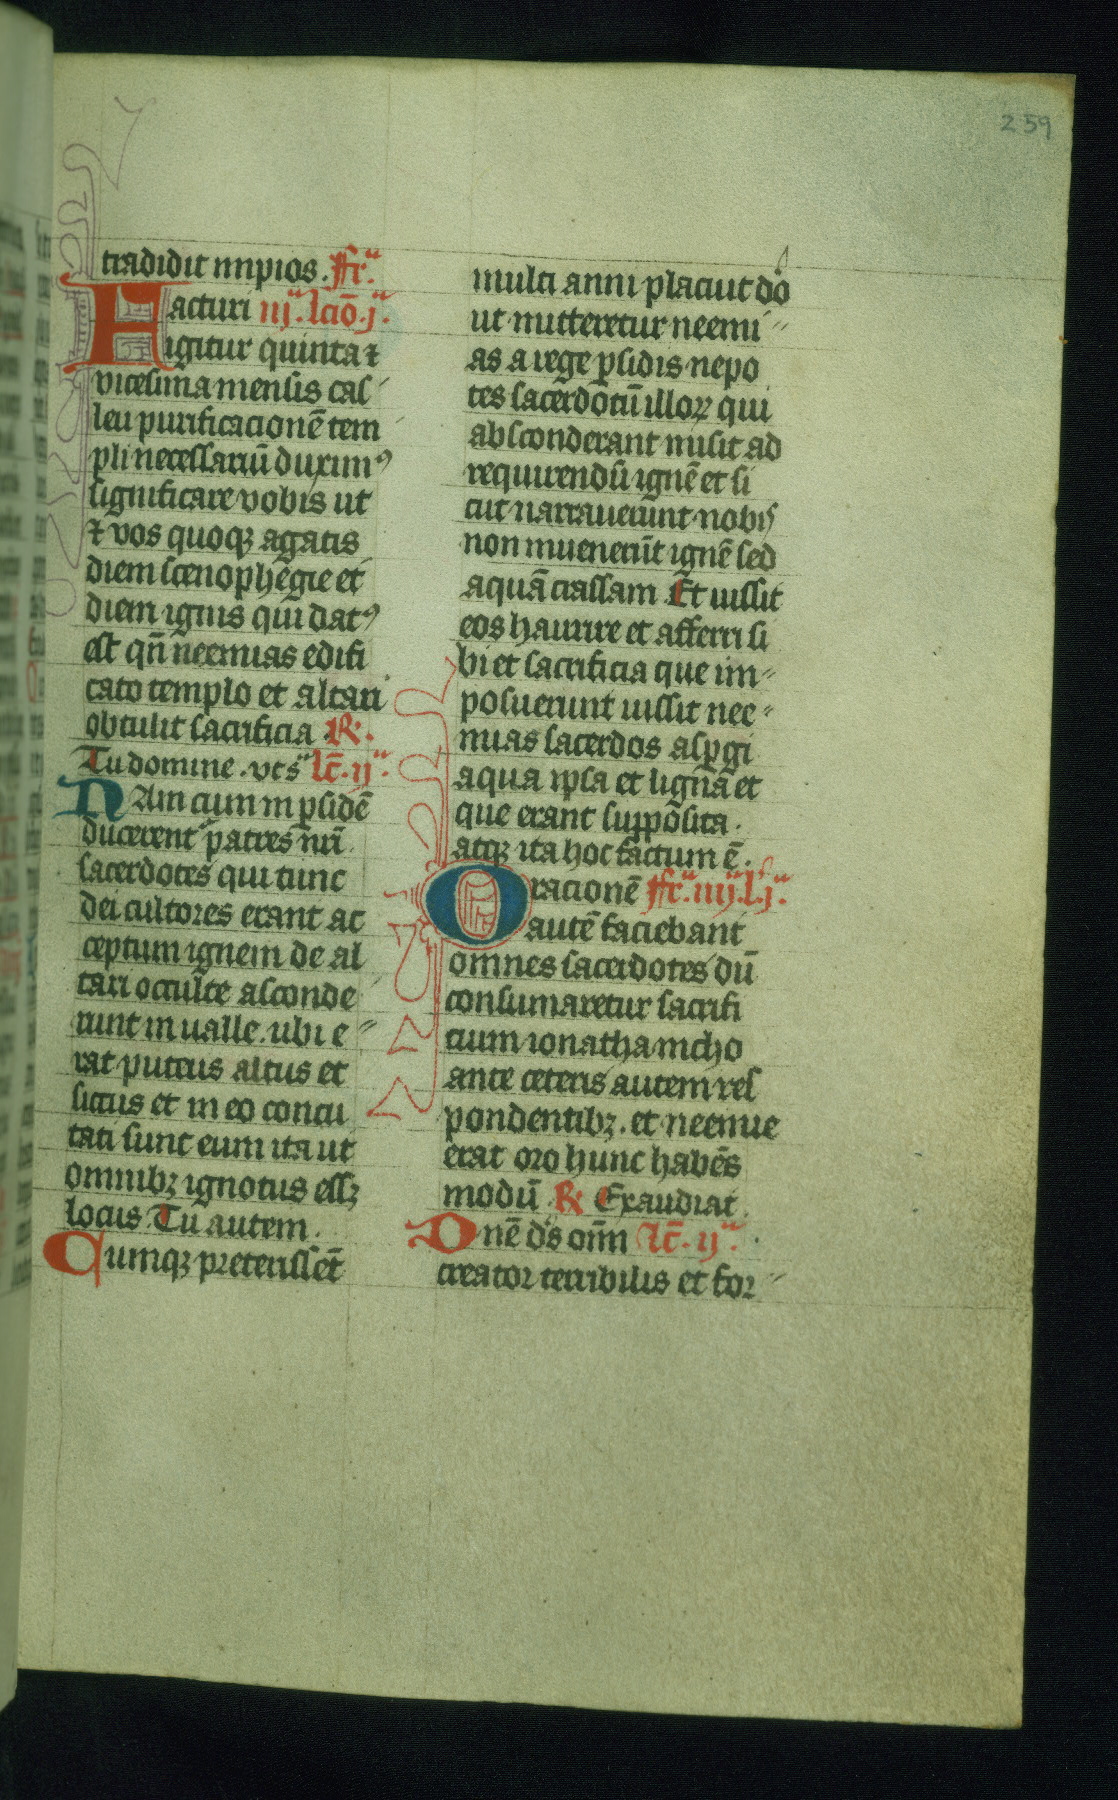 259
tradidit impios. ffr̃a
Facturi iij. lcıõ. j.a
igitur quinta ⁊
vicesima mensis cas
leu purificacionē tem
pli necessariū duximꝰ
significare vobis ut
⁊ vos quoqꝫ agatis
diem scenophegie et
diem ignis qui datꝰ
est qñ neemias edifi
cato templo et altari
obtulit sacrificia R.
Tu domine. vts̃ lc̄. ij.a
Nam cum in ꝑsidē
ducerent patres nr̃i
sacerdotes qui tunc
dei cultores erant ac
ceptum ignem de al
tari occulte asconde
runt in ualle. ubi e
rat puteus altus et
siccus et in eo contu
tati sunt eum ita ut
omnibꝫ ignotus essꝫ
locus Tu autem.
Cumqꝫ preterissēt
multi anni placiut dō
ut mitteretur neemi
as a rege ꝑsidis nepo
tes sacerdotū illoꝝ qui
absconderant misit ad
requirendū ignē et si
cut narrauerunt nobis
non inuenerūt ignē sed
aquā crassam Et iussit
eos haurire et afferri si
bi et sacrificia que im
posuerunt iussit nee
mias sacerdos asꝑgi
aqua ipsa et ligna et
que erant supposita.
atqꝫ ita hoc factum ē.
Oracionē ffr̃a. iiij. l. j.a
autē faciebant
omnes sacerdotes dū
consumaretur sacrifi
cium ionatha incho
ante ceteris autem res
pondentibꝫ. et neemie
erat oro hunc habēs
modū R Exaudiat.
Dnē ds̄ om̄n lc̄. ij.a
creator terribilis et for